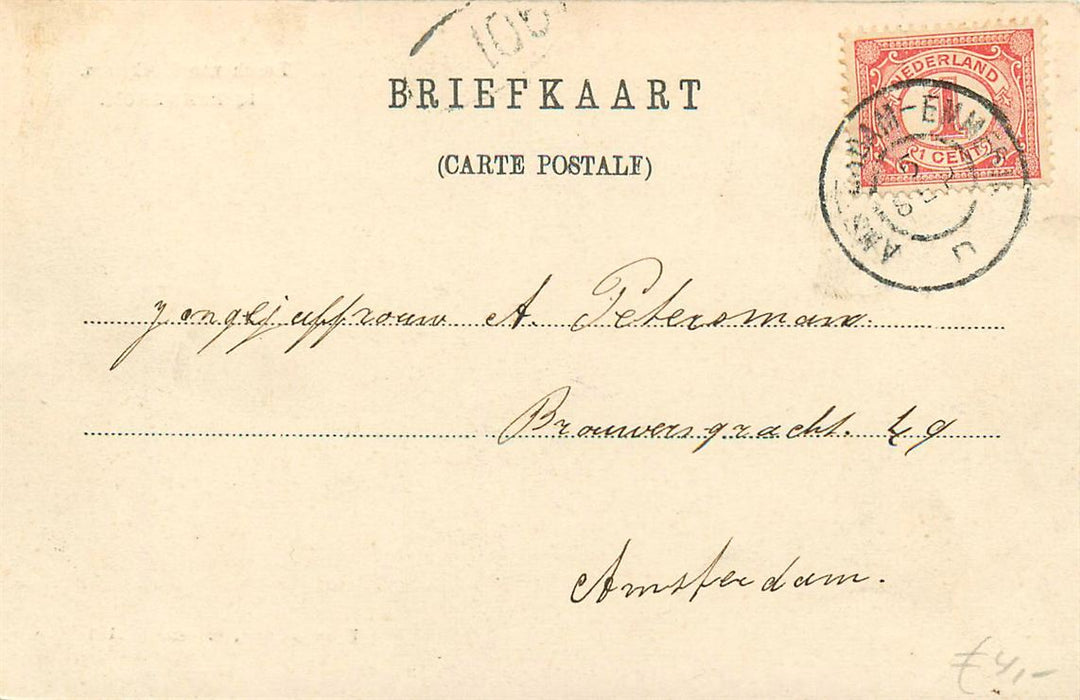 106
BRIEFKAART
(CARTE POSTALE)
NEDERLAND
1
1 CENT
AMSTERDAM-EMMERIK
Jongejuffrouw A. Petersman.
Brouwersgracht. 49
Amsterdam.
£4,-